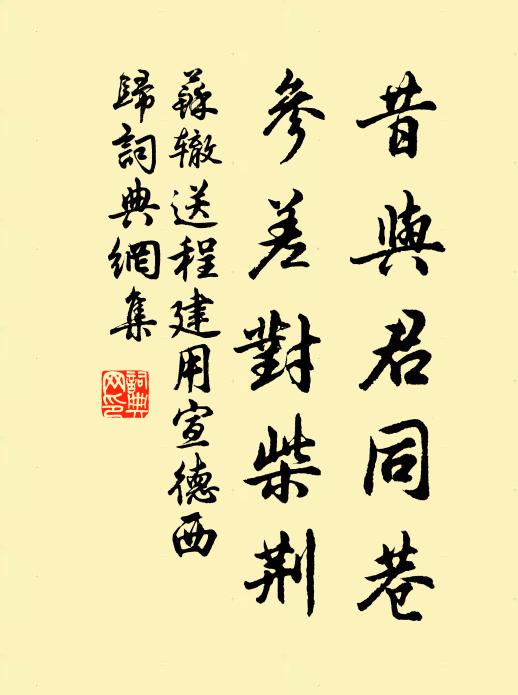 昔與君同巷
參差對柴荆
蘇辙送程建用宣德西
歸詞典網集
詞典
网印